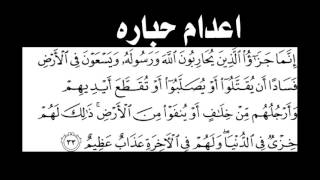 اعدام حباره
إِنَّمَا جَزَٰٓؤُا۟ ٱلَّذِينَ يُحَارِبُونَ ٱللَّهَ وَرَسُولَهُۥ وَيَسْعَوْنَ فِى ٱلْأَرْضِ
فَسَادًا أَن يُقَتَّلُوٓا۟ أَوْ يُصَلَّبُوٓا۟ أَوْ تُقَطَّعَ أَيْدِيهِمْ
وَأَرْجُلُهُم مِّنْ خِلَٰفٍ أَوْ يُنفَوْا۟ مِنَ ٱلْأَرْضِ ۚ ذَٰلِكَ لَهُمْ
خِزْىٌ فِى ٱلدُّنْيَا ۖ وَلَهُمْ فِى ٱلْءَاخِرَةِ عَذَابٌ عَظِيمٌ ٣٣